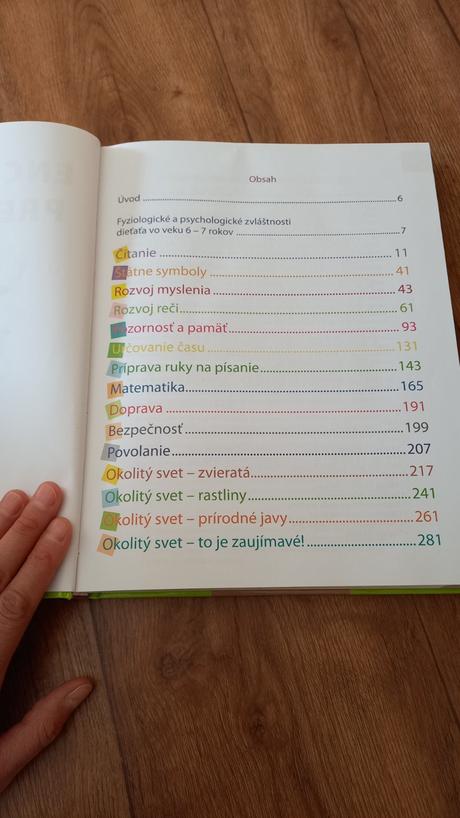 Obsah
Úvod 6
Fyziologické a psychologické zvláštnosti
dieťaťa vo veku 6 – 7 rokov 7
Čítanie 11
Štátne symboly 41
Rozvoj myslenia 43
Rozvoj reči 61
Pozornosť a pamäť 93
Určovanie času 131
Príprava ruky na písanie 143
Matematika 165
Doprava 191
Bezpečnosť 199
Povolanie 207
Okolitý svet – zvieratá 217
Okolitý svet – rastliny 241
Okolitý svet – prírodné javy 261
Okolitý svet – to je zaujímavé! 281